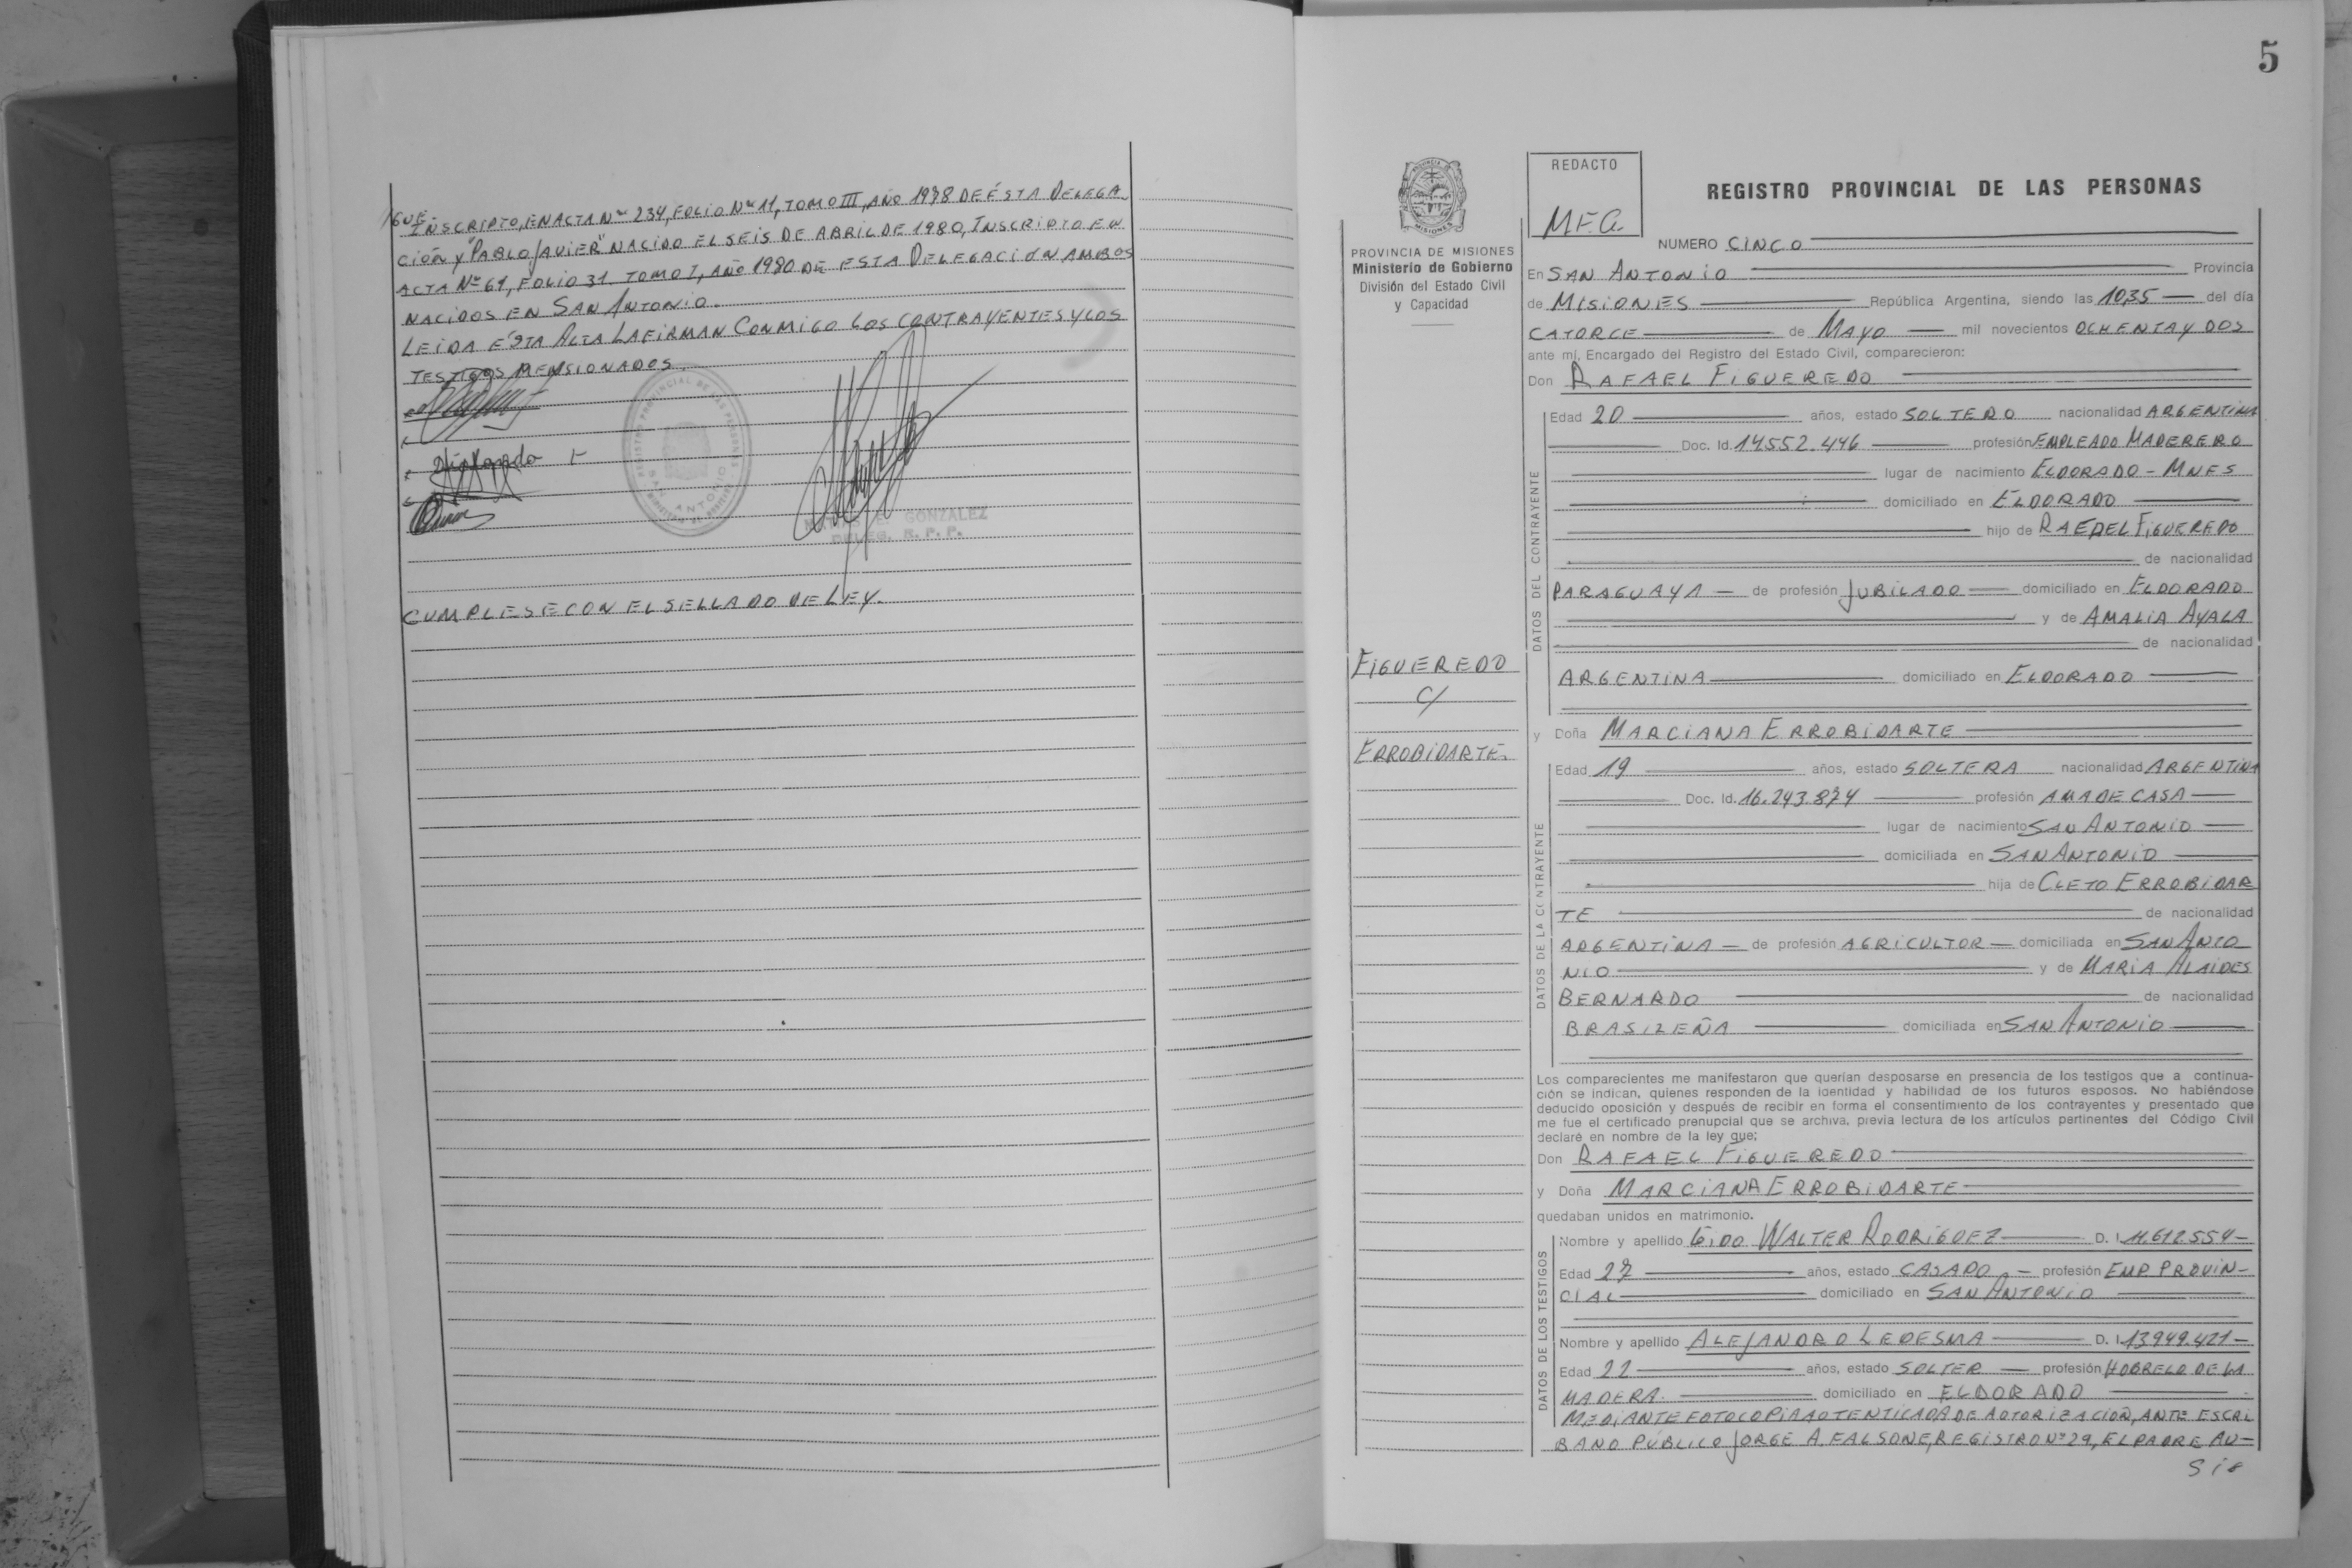 IGUE.
INSCRIPTO, EN ACTA Nº 234, FOLIO Nº 11, TOMO III, AÑO 1978 DE ÉSTA DELEGA
CIÓN Y "PABLO JAVIER" NACIDO EL SEIS DE ABRIL DE 1980, INSCRIPTO EN
ACTA Nº 61, FOLIO 31 TOMO I, AÑO 1980 DE ESTA DELEGACIÓN AMBOS
NACIDOS EN SAN ANTONIO.
LEIDA ÉSTA ACTA LA FIRMAN CONMIGO LOS CONTRAYENTES Y LOS
TESTIGOS MENSIONADOS.
REGISTRO PROVINCIAL DE LAS PERSONAS
SAN ANTONIO
MATIAS E. GONZALEZ
DELEG. R. P. P.
CUMPLESE CON EL SELLADO DE LEY.
5
REDACTO
M.F.G.
REGISTRO PROVINCIAL DE LAS PERSONAS
PROVINCIA DE MISIONES
Ministerio de Gobierno
División del Estado Civil
y Capacidad
FIGUEREDO
C/
ERROBIDARTE.
NUMERO CINCO
En SAN ANTONIO Provincia
de MISIONES República Argentina, siendo las 10,35 del día
CATORCE de MAYO mil novecientos OCHENTA Y DOS
ante mí, Encargado del Registro del Estado Civil, comparecieron:
Don RAFAEL FIGUEREDO
DATOS DEL CONTRAYENTE
Edad 20 años, estado SOLTERO nacionalidad ARGENTINA
Doc. Id. 14.552.446 profesión EMPLEADO MADERERO
lugar de nacimiento ELDORADO - MNES
domiciliado en ELDORADO
hijo de RAFAEL FIGUEREDO
de nacionalidad
PARAGUAYA de profesión JUBILADO domiciliado en ELDORADO
y de AMALIA AYALA
de nacionalidad
ARGENTINA domiciliado en ELDORADO
y Doña MARCIANA ERROBIDARTE
DATOS DE LA CONTRAYENTE
Edad 19 años, estado SOLTERA nacionalidad ARGENTINA
Doc. Id. 16.243.874 profesión AMA DE CASA
lugar de nacimiento SAN ANTONIO
domiciliada en SAN ANTONIO
hija de CLETO ERROBIDAR
TE de nacionalidad
ARGENTINA de profesión AGRICULTOR domiciliada en SAN ANTO
NIO y de MARIA ALAIDES
BERNARDO de nacionalidad
BRASILEÑA domiciliada en SAN ANTONIO
Los comparecientes me manifestaron que querían desposarse en presencia de los testigos que a continua-
ción se indican, quienes responden de la identidad y habilidad de los futuros esposos. No habiéndose
deducido oposición y después de recibir en forma el consentimiento de los contrayentes y presentado que
me fue el certificado prenupcial que se archiva, previa lectura de los artículos pertinentes del Código Civil
declaré en nombre de la ley que:
Don RAFAEL FIGUEREDO
y Doña MARCIANA ERROBIDARTE
quedaban unidos en matrimonio.
DATOS DE LOS TESTIGOS
Nombre y apellido GIDO WALTER RODRIGUEZ D. I. 11.612.554
Edad 27 años, estado CASADO profesión EMP. PROVIN-
CIAL domiciliado en SAN ANTONIO
Nombre y apellido ALEJANDRO LEDESMA D. I. 13.949.421
Edad 22 años, estado SOLTER profesión HOBRERO DE LA
MADERA. domiciliado en ELDORADO
MEDIANTE FOTOCOPIA AOTENTICADA DE AOTORIZACIÓN, ANTE ESCRI
BANO PÚBLICO JORGE A FALSONE, REGISTRO Nº 29, EL PADRE AU-